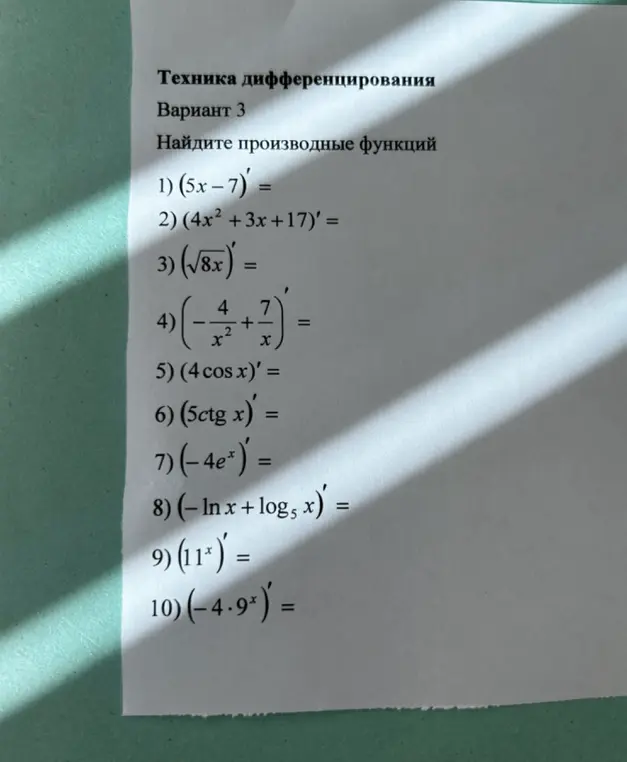 Техника дифференцирования
Вариант 3
Найдите производные функций
1) (5x − 7)′ =
2) (4x² + 3x + 17)′ =
3) (√8x)′ =
4) (−4/x² + 7/x)′ =
5) (4 cos x)′ =
6) (5ctg x)′ =
7) (− 4eˣ)′ =
8) (− ln x + log₅ x)′ =
9) (11ˣ)′ =
10) (− 4 · 9ˣ)′ =